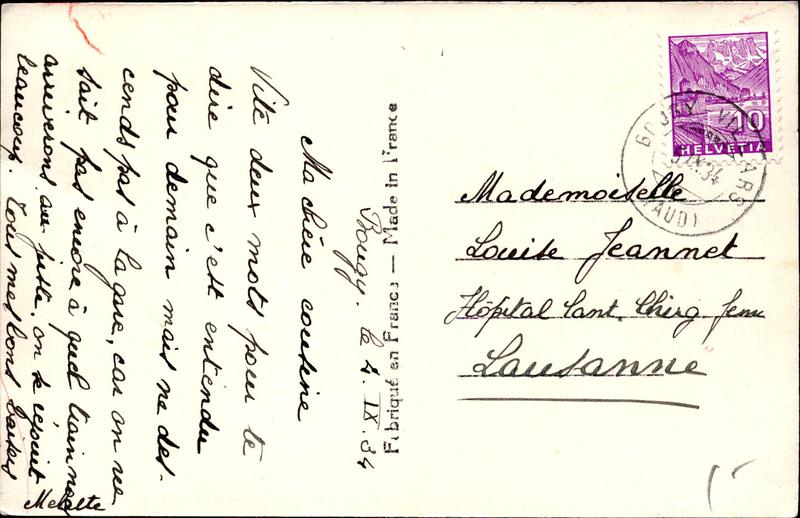 Bougy. le 7. IX. 34
Ma chère cousine
Vite deux mots pour te
dire que c'est entendu
pour demain mais ne des-
cends pas à la gare, car on ne
sait pas encore à quel train nous
arriverons au juste, on se réjouit
beaucoup. Tous mes bons baisers
Fabriqué en France — Made in France
10
HELVETIA
BOUGY-VILLARS
IX.34
(VAUD)
Mademoiselle
Louise Jeannet
Hôpital Cant. Chirg. fem
Lausanne